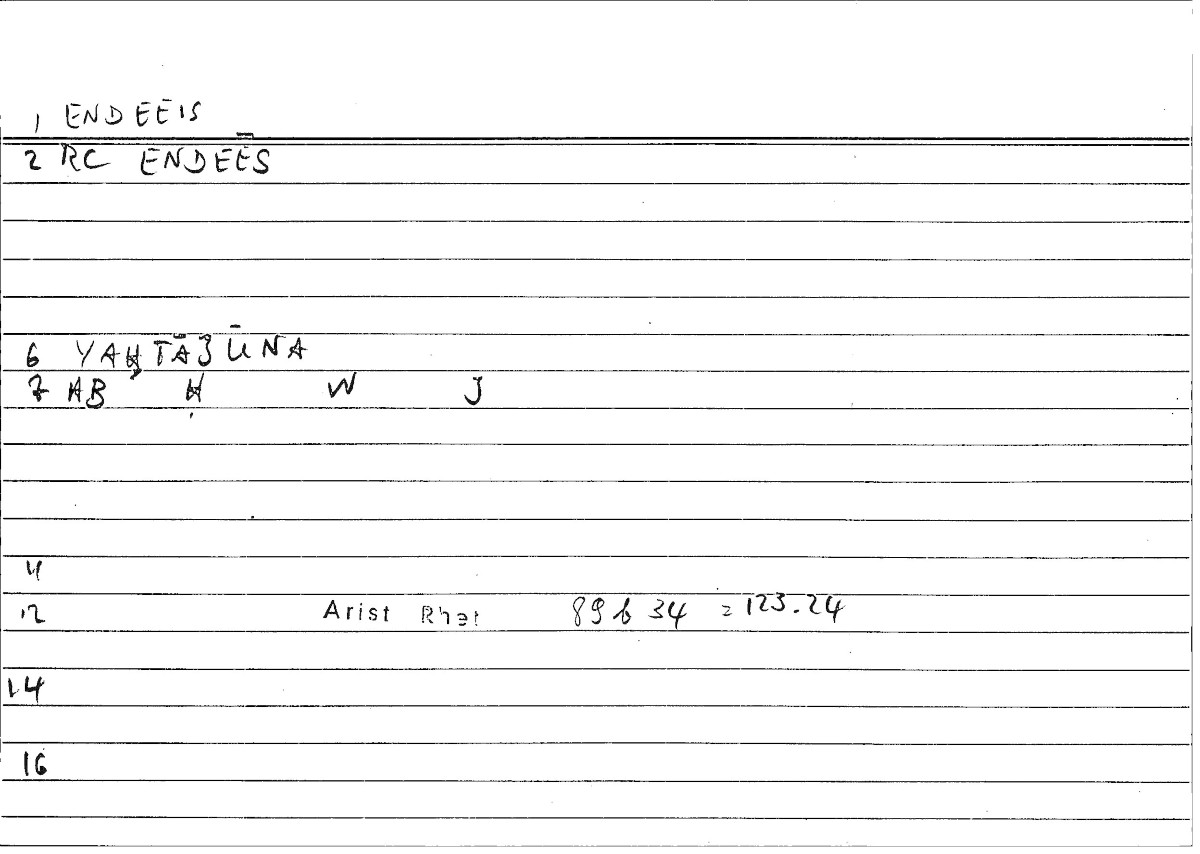 1 ENDEEIS
2 RC ENDEĒS
6 YAḤTĀJ̌ŪNA
7 AB Ḥ W J
11
12 Arist Rhet 89b 34 = 123.24
14
16